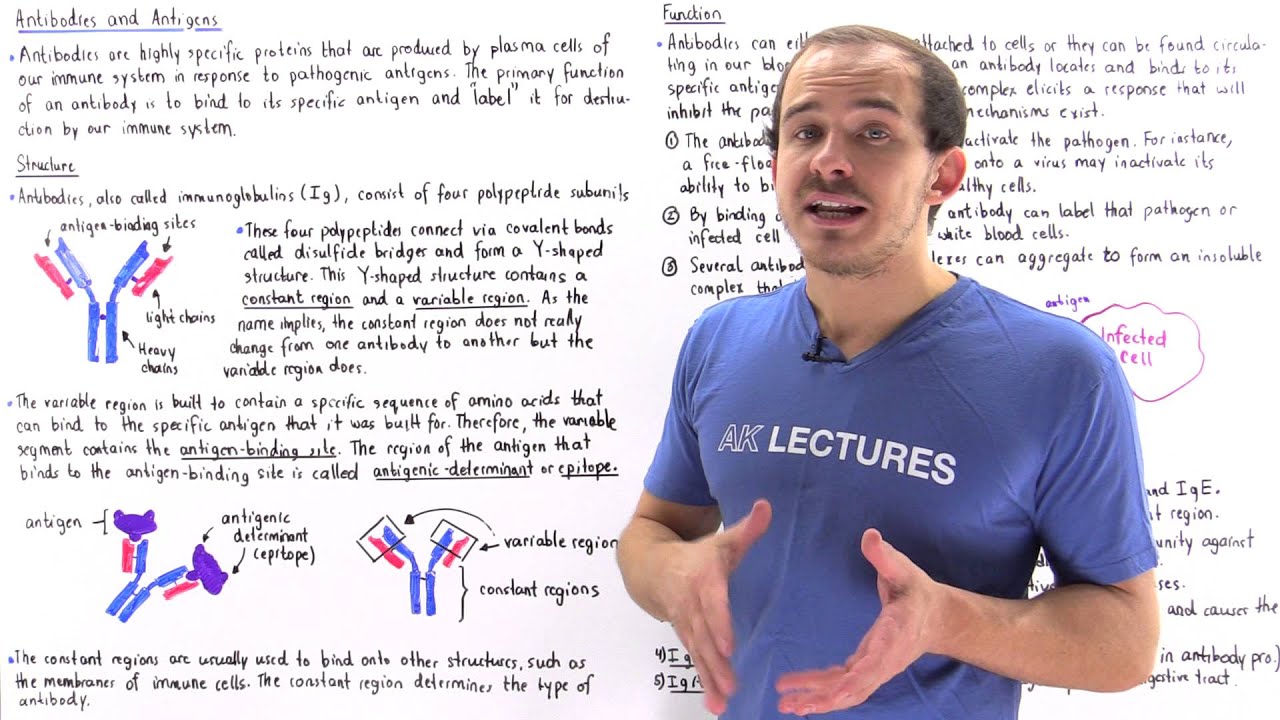 Antibodies and Antigens
• Antibodies are highly specific proteins that are produced by plasma cells of
our immune system in response to pathogenic antigens. The primary function
of an antibody is to bind to its specific antigen and "label" it for destru-
ction by our immune system.
Structure
• Antibodies, also called immunoglobulins (Ig), consist of four polypeptide subunits
antigen-binding sites
light chains
Heavy
chains
• These four polypeptides connect via covalent bonds
called disulfide bridges and form a Y-shaped
structure. This Y-shaped structure contains a
constant region and a variable region. As the
name implies, the constant region does not really
change from one antibody to another but the
variable region does.
• The variable region is built to contain a specific sequence of amino acids that
can bind to the specific antigen that it was built for. Therefore, the variable
segment contains the antigen-binding site. The region of the antigen that
binds to the antigen-binding site is called antigenic-determinant or epitope.
antigen
antigenic
determinant
(epitope)
variable region
constant regions
• The constant regions are usually used to bind onto other structures, such as
the membranes of immune cells. The constant region determines the type of
antibody.
Function
• Antibodies can attached to cells or they can be found circula-
ting in our an antibody locates and binds to its
specific complex elicits a response that will
inhibit the mechanisms exist.
① The activate the pathogen. For instance,
a onto a virus may inactivate its
ability to cells.
② By binding antibody can label that pathogen or
infected cell white blood cells.
③ Several can aggregate to form an insoluble
complex
antigen
Infected
Cell
and IgE.
region.
against
and causes the
4) in antibody pro.)
5) tract.
AK LECTURES